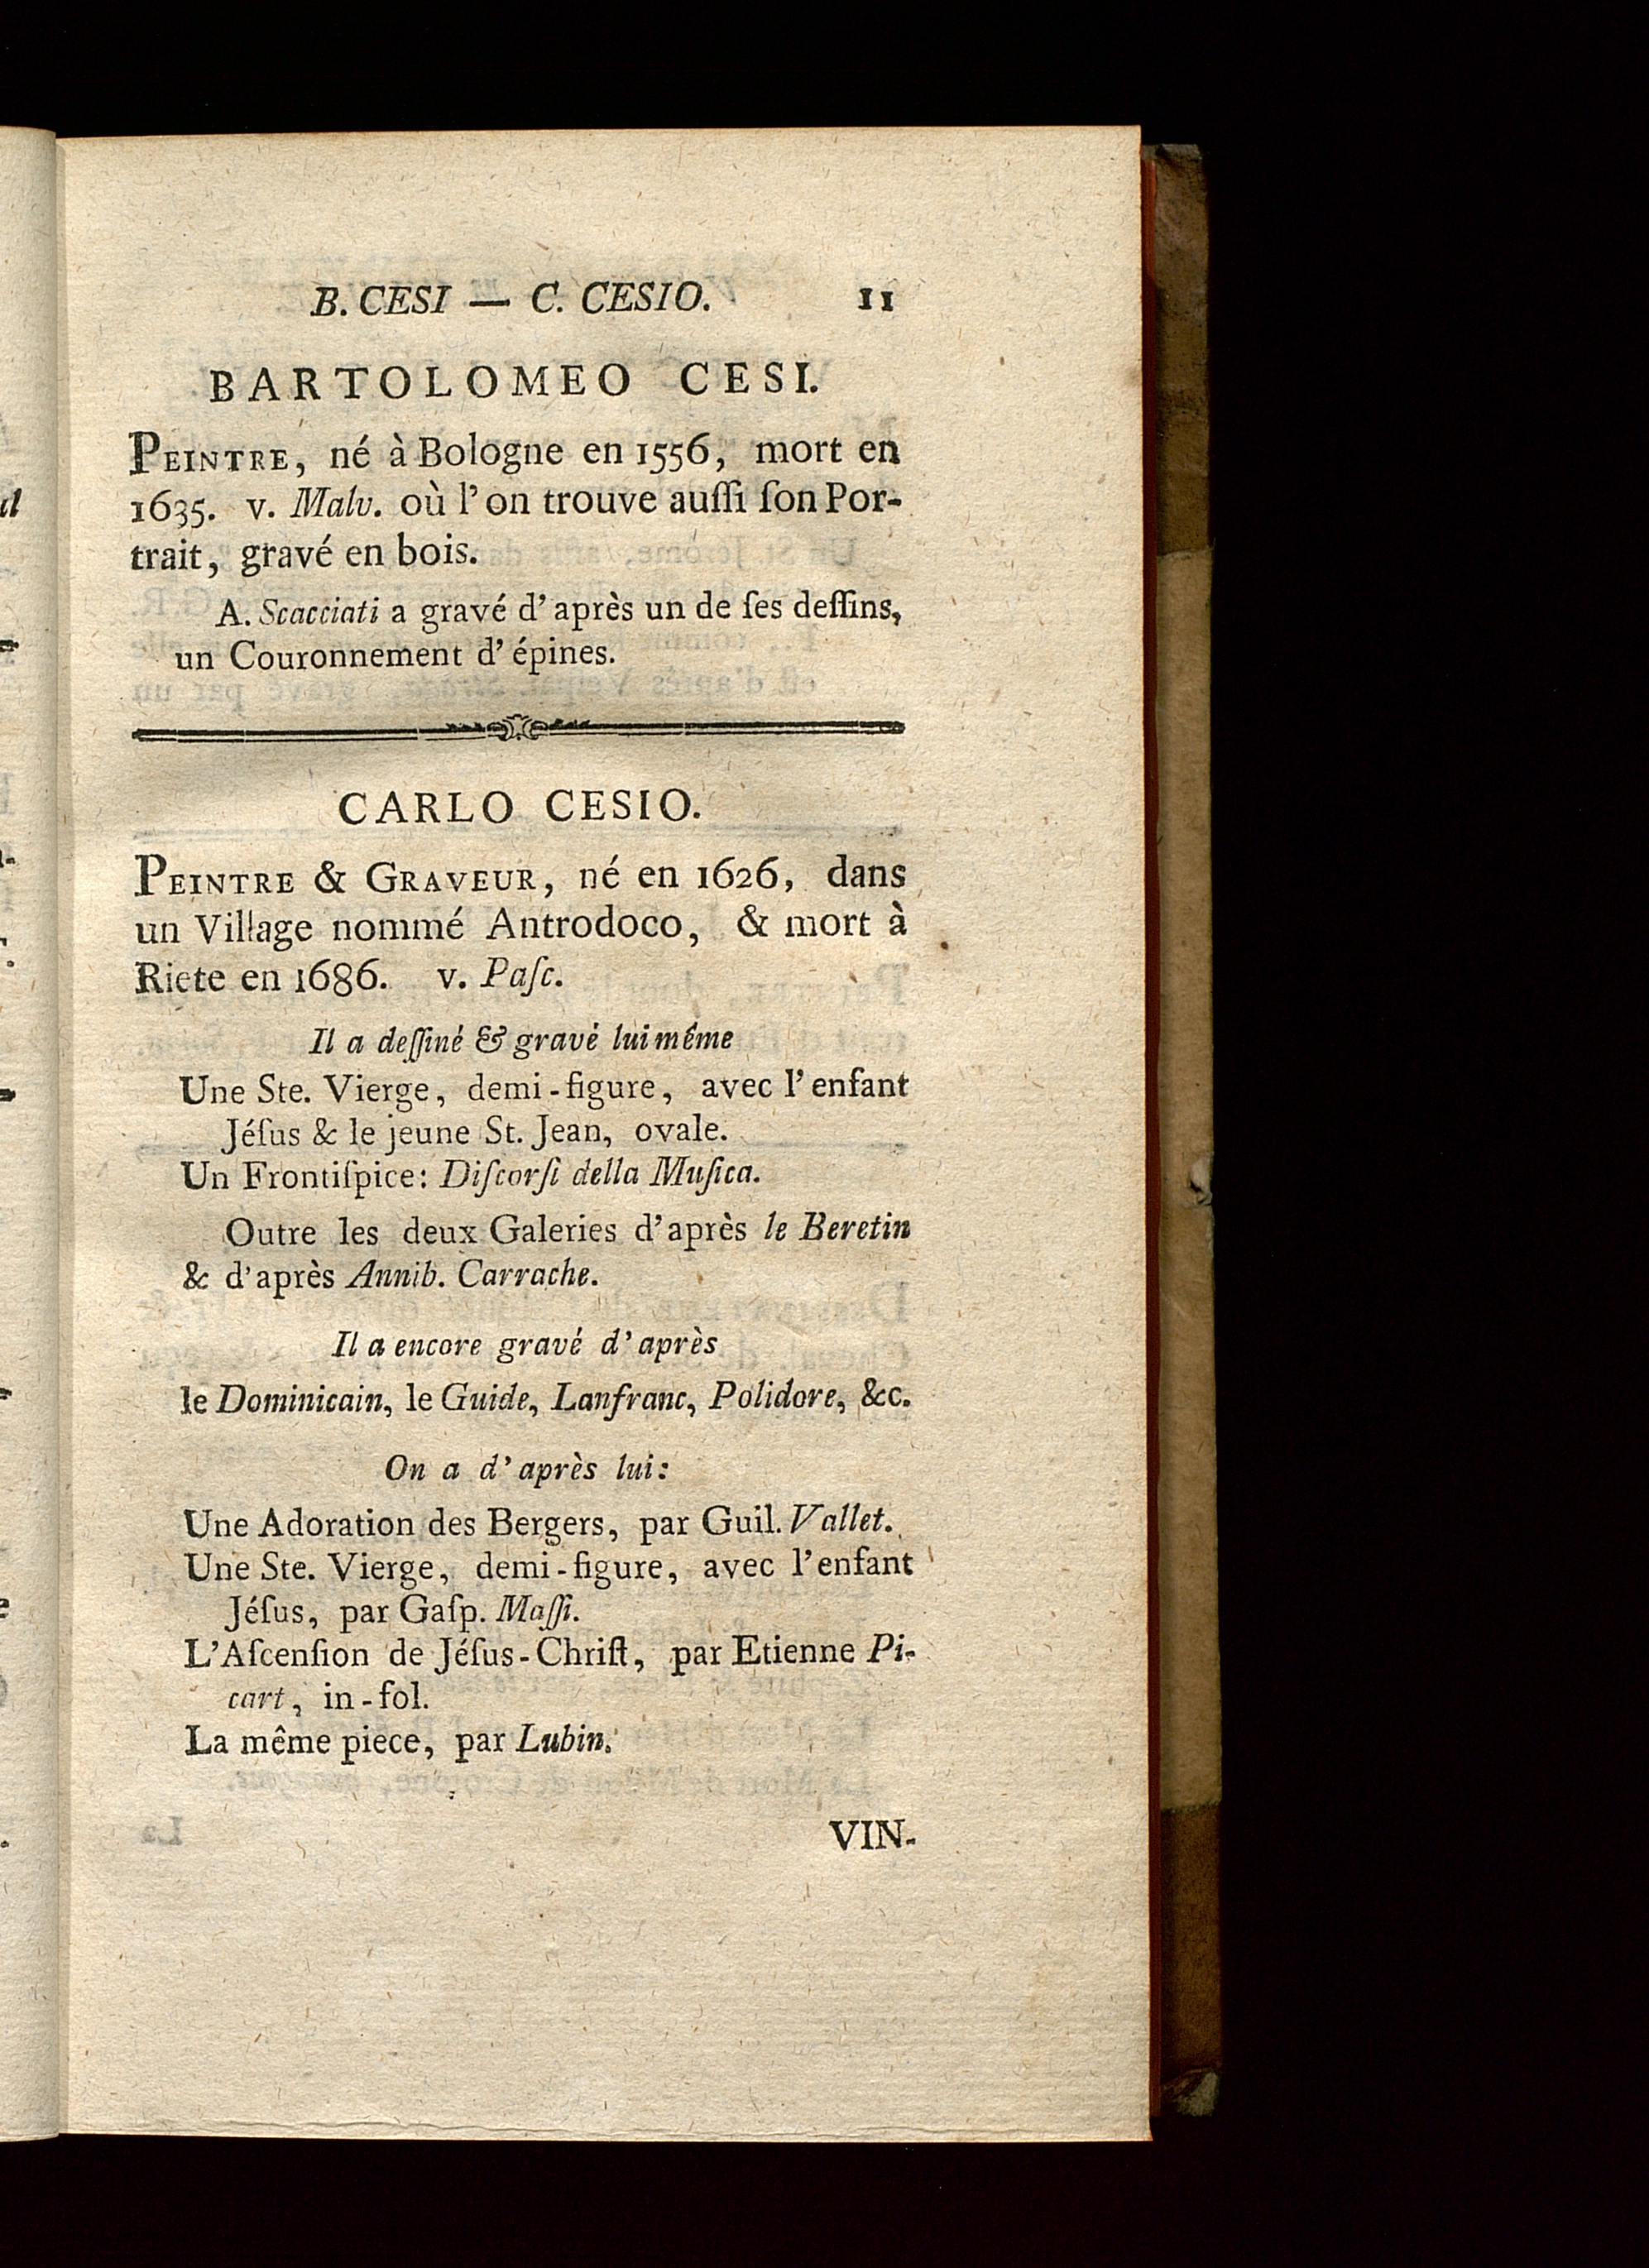 B. CESI — C. CESIO. 11
BARTOLOMEO CESI.
PEINTRE, né à Bologne en 1556, mort en
1635. v. Malv. où l'on trouve auſſi ſon Por-
trait, gravé en bois.
A. Scacciati a gravé d'après un de ſes deſſins,
un Couronnement d'épines.
CARLO CESIO.
PEINTRE & GRAVEUR, né en 1626, dans
un Village nommé Antrodoco, & mort à
Riete en 1686. v. Paſc.
Il a deſſiné & gravé lui même
Une Ste. Vierge, demi-figure, avec l'enfant
Jéſus & le jeune St. Jean, ovale.
Un Frontiſpice: Diſcorſi della Muſica.
Outre les deux Galeries d'après le Beretin
& d'après Annib. Carrache.
Il a encore gravé d'après
le Dominicain, le Guide, Lanfranc, Polidore, &c.
On a d'après lui:
Une Adoration des Bergers, par Guil. Vallet.
Une Ste. Vierge, demi-figure, avec l'enfant
Jéſus, par Gaſp. Maſſi.
L'Aſcenſion de Jéſus-Chriſt, par Etienne Pi-
cart, in-fol.
La même piece, par Lubin.
VIN-